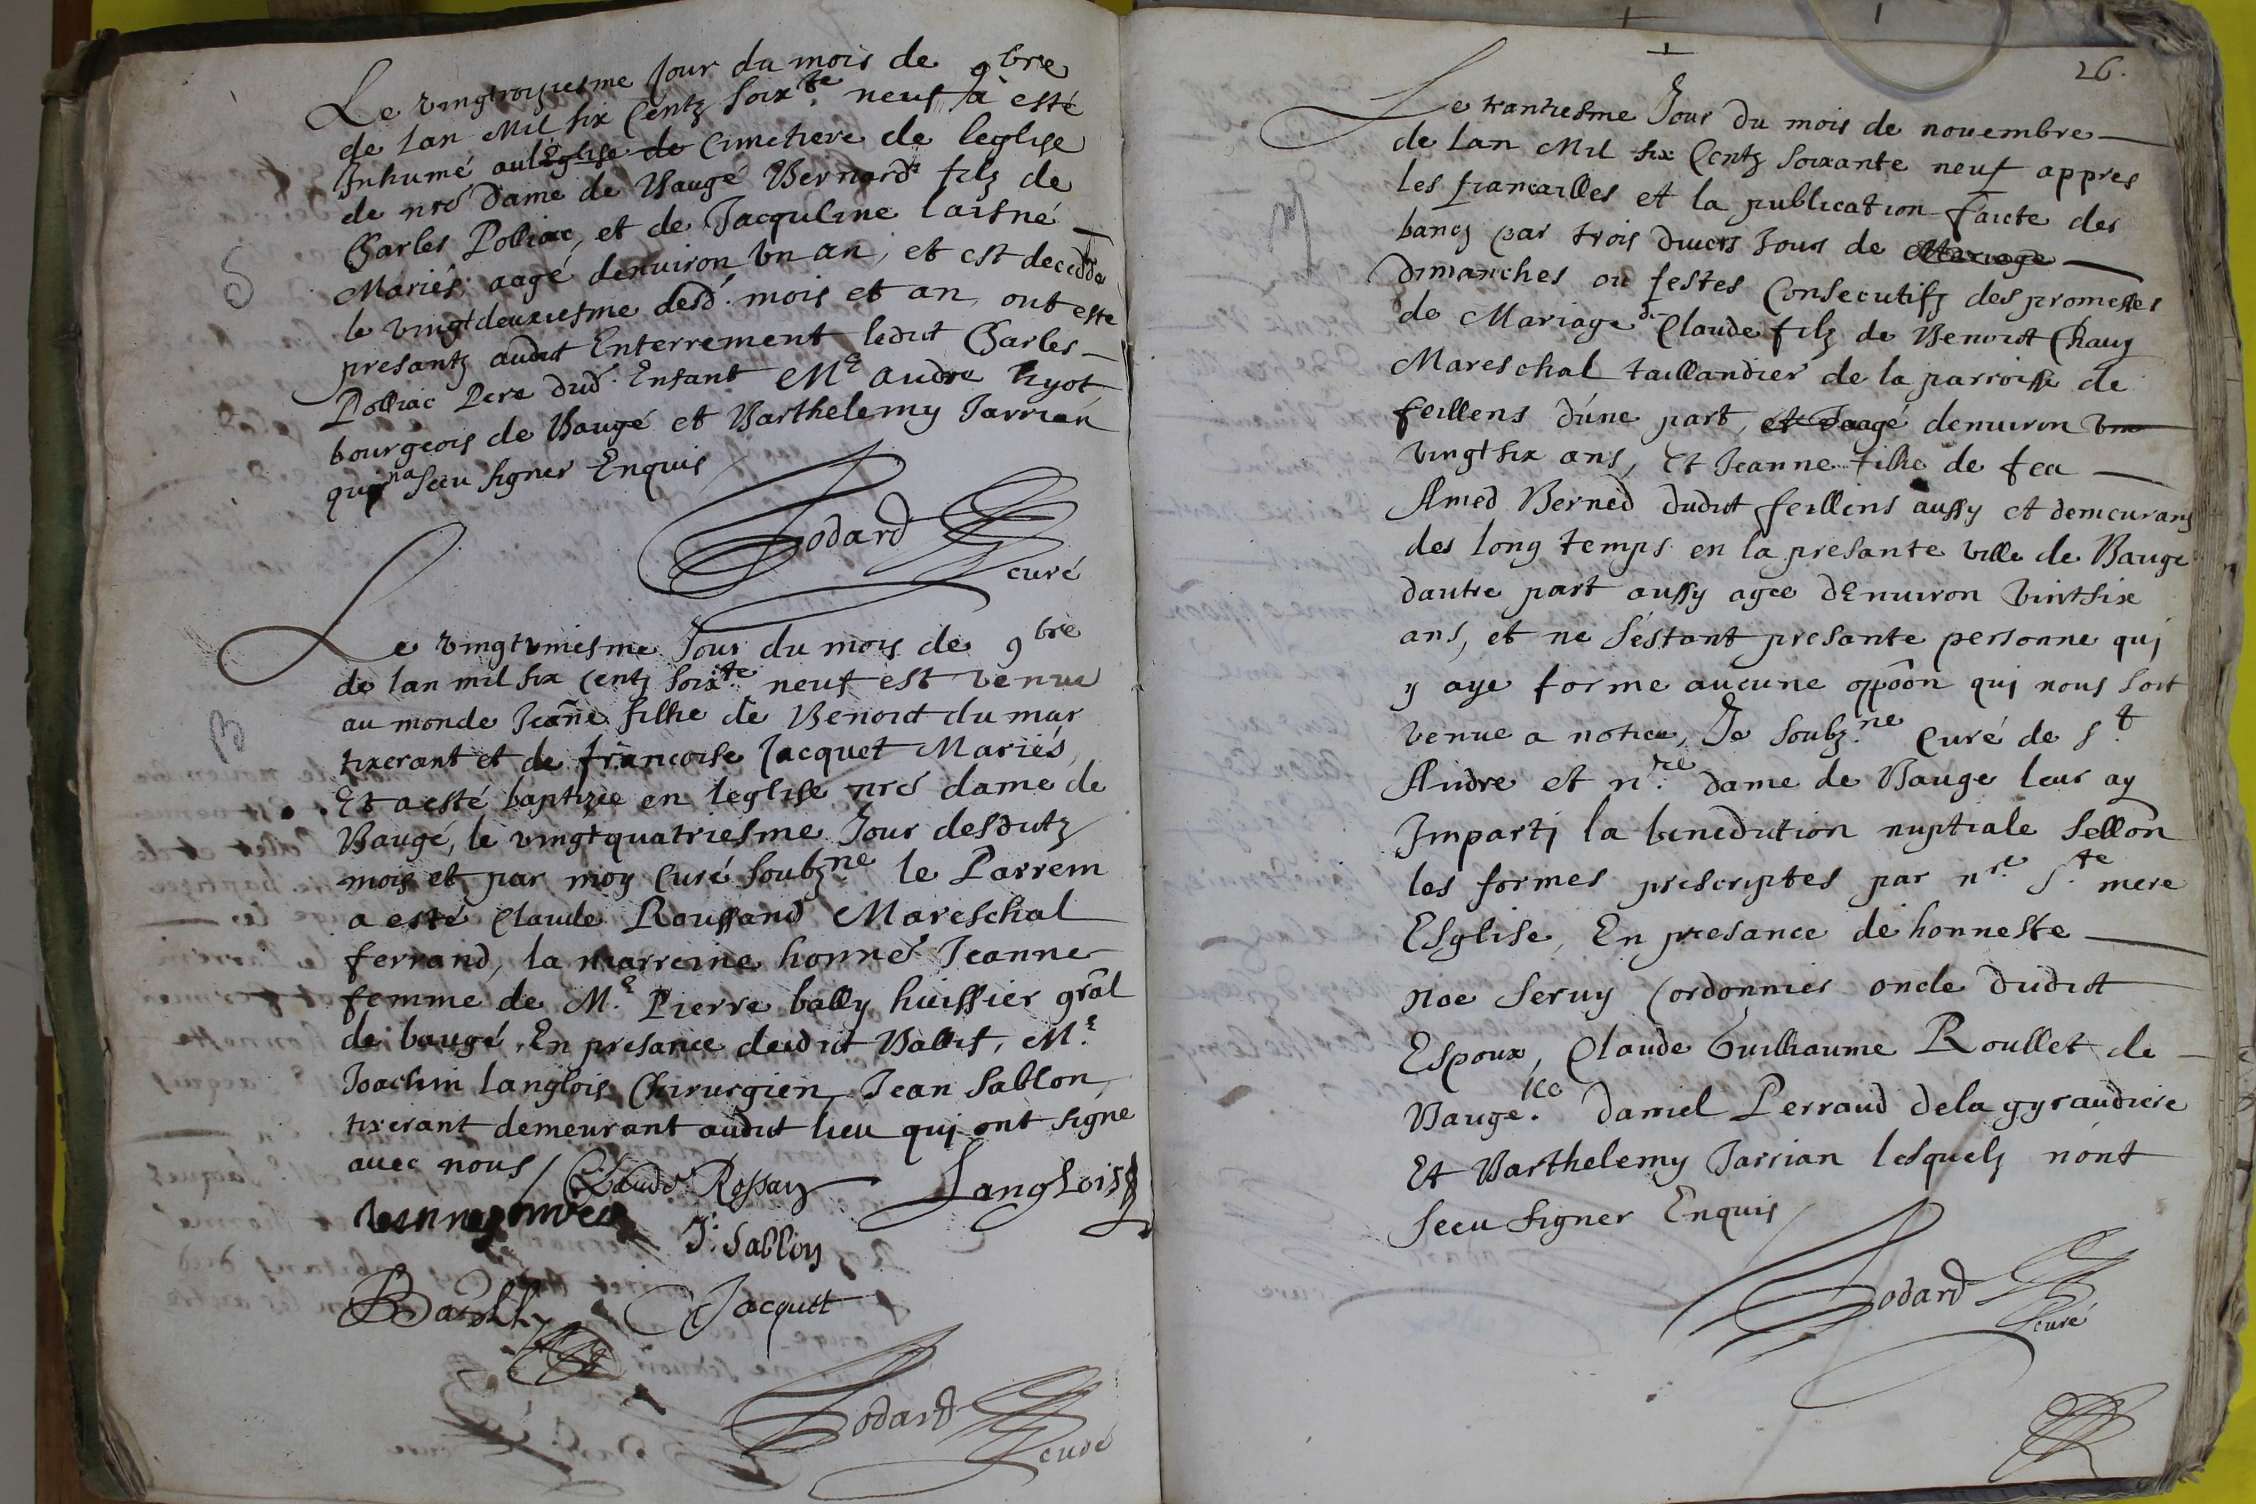 Le vingtroyziesme Jour du mois de 9bre
de lan Mil six Centz soixte neuf à esté
Inhumé aulEglise de Cimetiere de leglise
de nre Dame de Baugé Bernard filz de
Charles Polliac, et de Jacquline laisné
Mariés, aagé denuiron Vn an, et est decedde
S
le vingtdeuxiesme desd. mois et an, ont este
presantz audit Enterrement ledict Charles
Polliac Pere dud. Enfant Me Andre hyot
bourgeois de Baugé et Barthelemy Jarrian
qui na sceu signer Enquis
Jodard
curé
Le vingtvniesme Jour du mois de 9bre
de lan mil six Centz soixte neuf est venue
B
au monde Jeanne fillie de Benoict du mar
tixerant et de francoise Jacquet Mariés,
Et a esté baptizée en leglise nre dame de
Baugé, le vingtquatriesme Jour desdictz
mois et par moy Curé soubzne le Parrein
a esté Claude Roussand Mareschal
ferrand, la marreine honne Jeanne
femme de Me Pierre bally huissier gral
de baugé, En presance desdict Ballif, Me
Joachin langlois Chirurgien, Jean Sablon
tixerant demeurant audict lieu qui ont signe
auec nous
Claude Rossan Langlois
J. Sablon
Bally Jacquet
Jodard
curé
26.
Le trantiesme Jour du mois de nouembre
de Lan Mil six Centz soixante neuf appres
les fiancailles et la publication faicte des
M
bancz par trois diuers Jours de Mariage
dimanches ou festes Consecutifz des promesses
de Mariage di Claude filz de Benoict Chaux
Mareschal taillandier de la parroisse de
feillens d'une part, et Jaagé denuiron vin
vingtsix ans, Et Jeanne fillie de feu
Amed Berned dudict feillens aussy et demeurans
des long temps en la presante ville de Bauge
dautre part aussy agee dEnuiron vintsix
ans, et ne s'estant presante personne qui
y aye forme aucune oppoôn qui nous soit
venue a notice, Je soubzne Curé de St
Andre et nre dame de Bauge leur ay
Imparti la benediction nuptiale sellon
les formes prescriptes par nre Ste mere
ESglise, En presance de honneste
noe Seruy Cordonnier oncle dudict
Espoux, Claude Guilliaume Roullet de
Bauge. Daniel Perraud dela gyraudiere
Et Barthelemy Jarrian lesquelz n'ont
sceu signer Enquis
Jodard
curé